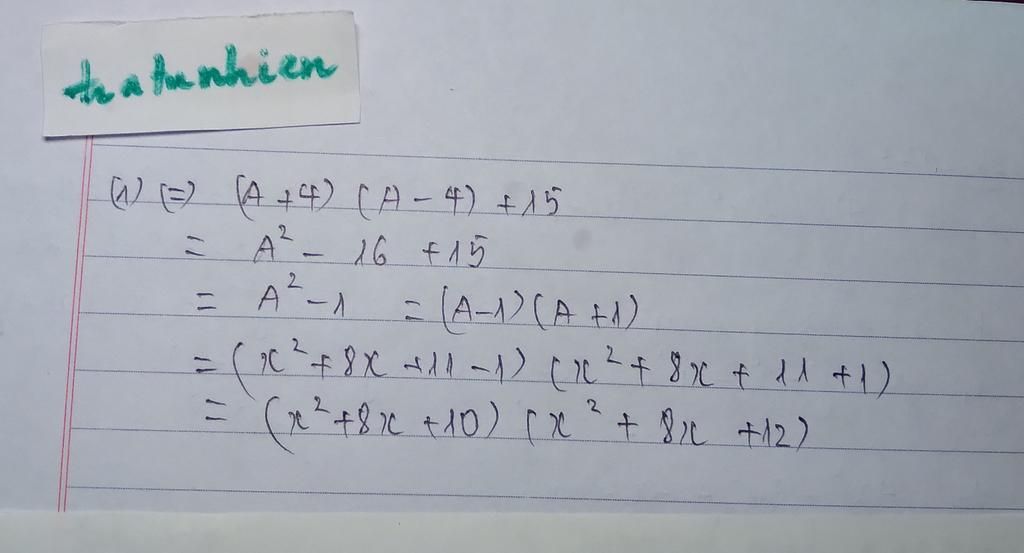 tratunhien
(1) (=) (A + 4) (A - 4) + 15
= A² - 16 + 15
= A² - 1 = (A - 1) (A + 1)
= (x² + 8x + 11 - 1) (x² + 8x + 11 + 1)
= (x² + 8x + 10) (x² + 8x + 12)